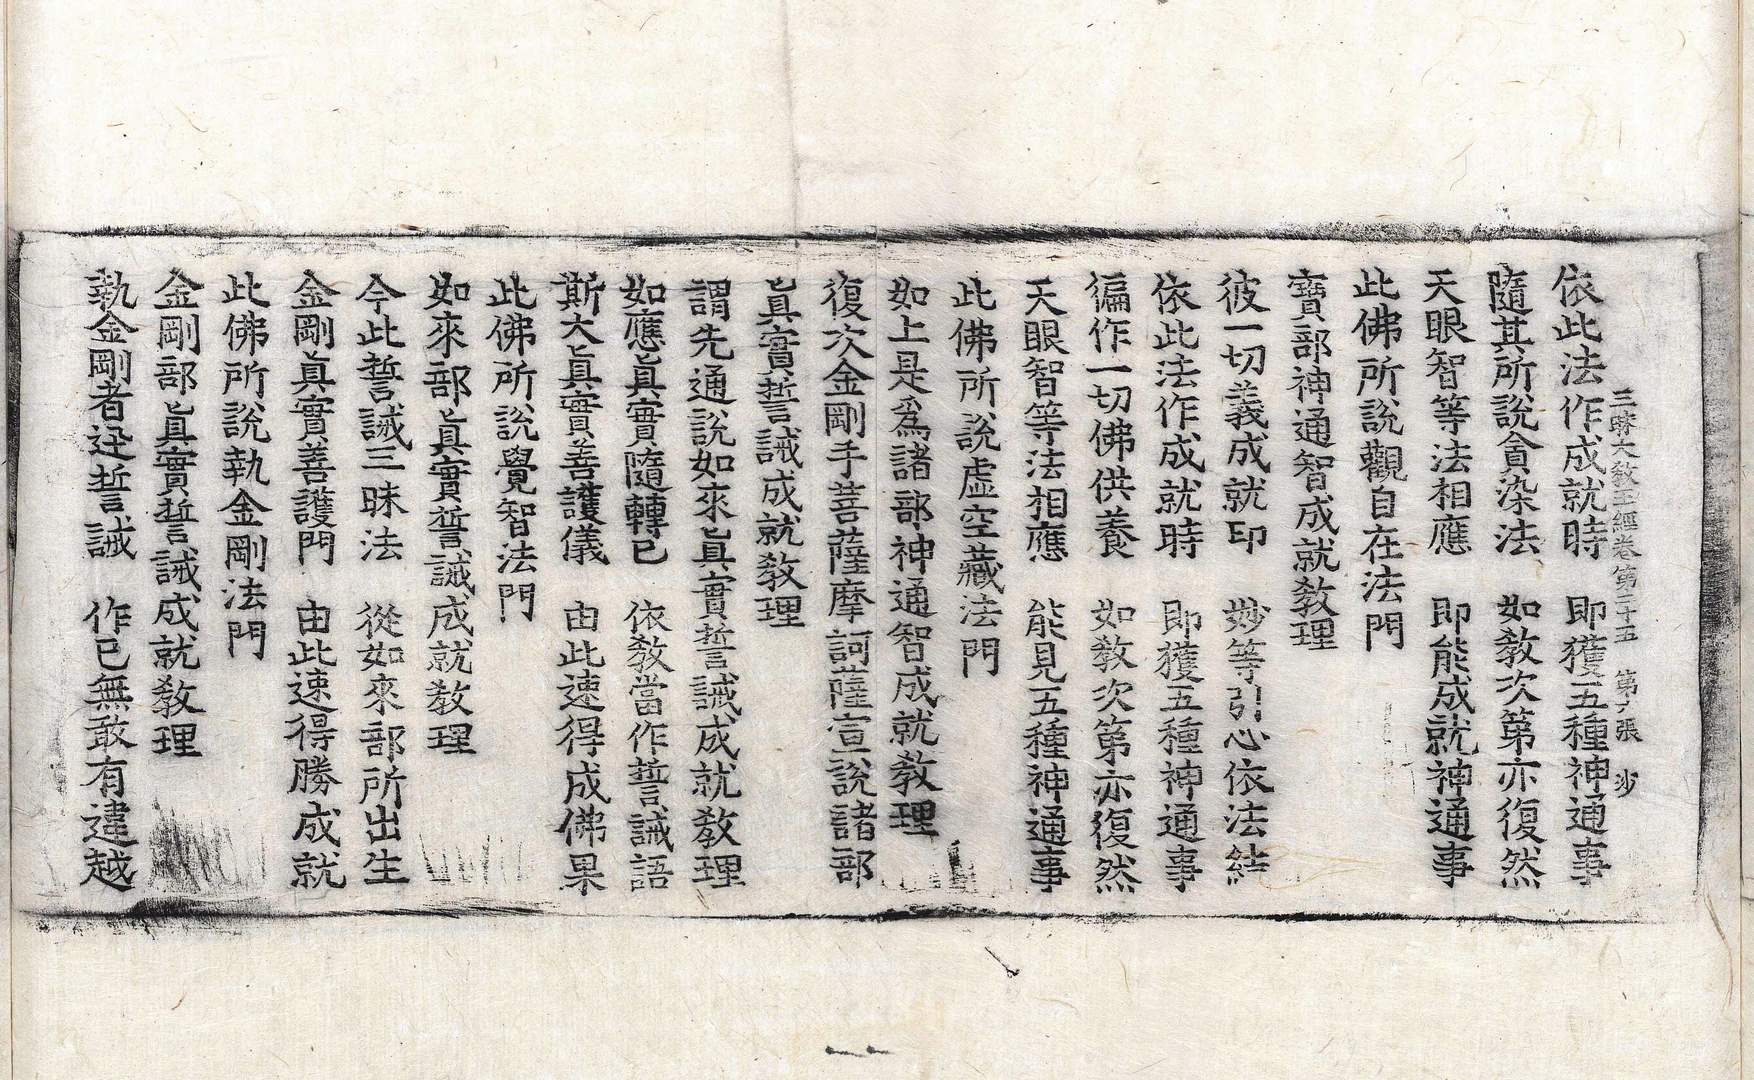 三昧大教王經卷第二十五　第六張　沙
依此法作成就時　即獲五種神通事
隨其所說貪染法　如教次第亦復然
天眼智等法相應　即能成就神通事
此佛所說觀自在法門
寶部神通智成就教理
彼一切義成就印　妙等引心依法結
依此法作成就時　即獲五種神通事
徧作一切佛供養　如教次第亦復然
天眼智等法相應　能見五種神通事
此佛所說虛空藏法門
如上是爲諸部神通智成就教理
復次金剛手菩薩摩訶薩宣說諸部
眞實誓誡成就教理
謂先通說如來眞實誓誡成就教理
如應眞實隨轉已　依教當作誓誡語
斯大眞實善護儀　由此速得成佛果
此佛所說覺智法門
如來部眞實誓誡成就教理
今此誓誡三昧法　從如來部所出生
金剛眞實善護門　由此速得勝成就
此佛所說執金剛法門
金剛部眞實誓誡成就教理
執金剛者迅誓誡　作已無敢有違越